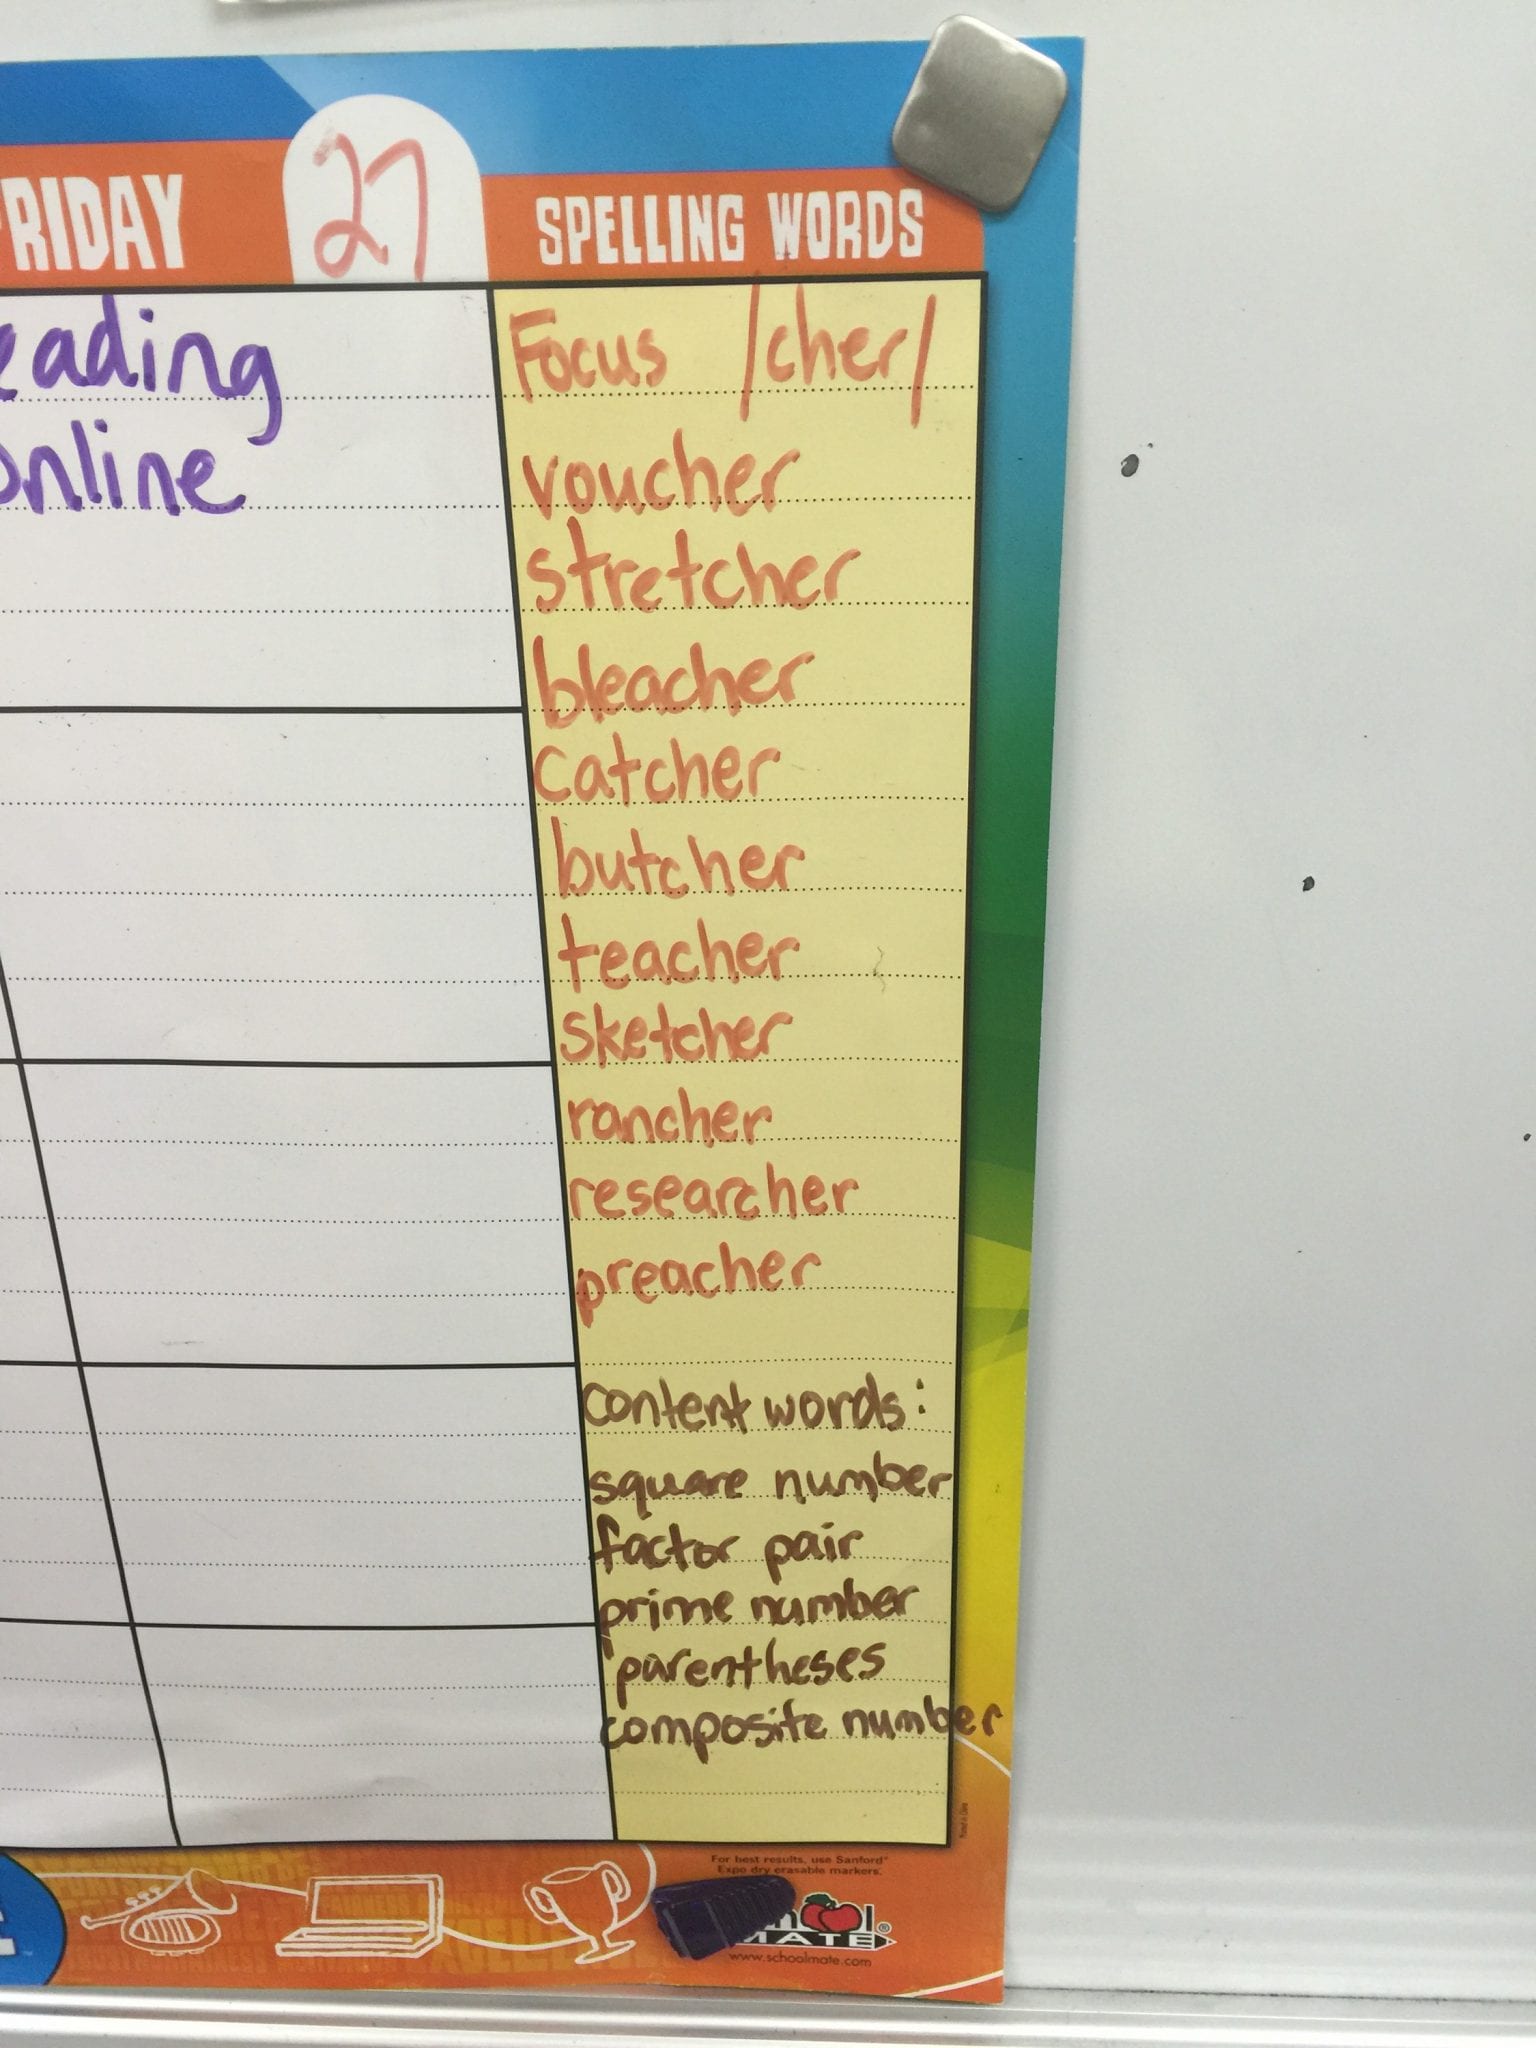 RIDAY
27
SPELLING WORDS
eading
Online
Focus /cher/
voucher
stretcher
bleacher
catcher
butcher
teacher
sketcher
rancher
researcher
preacher
content words:
square number
factor pair
prime number
parentheses
composite number
For best results, use Sanford®
Expo dry erasable markers.
MATE
www.schoolmate.com